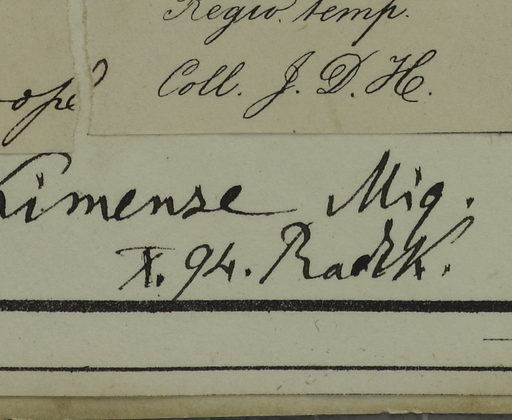 Regio. temp.
Coll. J. D. H.
kimense Miq.
X. 94. Radlk.